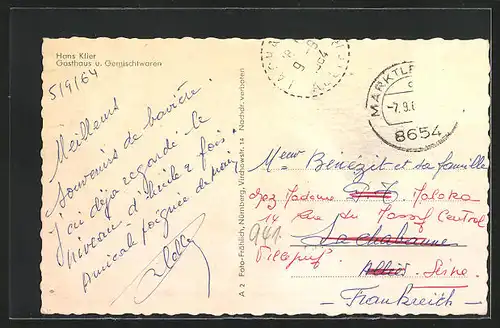 Hans Klier
Gasthaus u. Gemischtwaren
5/9/64
Meilleurs
souvenirs de bavière.
j'ai déjà regardé le
niveau d'huile 2 fois.
Amicale poignée de main
A 2 Foto-Fröhlich, Nürnberg, Virchowstr. 14 Nachdr. verboten
MARKTLE
-7.9.6
8654
Meur Bénézit et sa famille
chez Madame
14 Rue du Massif Central
941
La Chabanne
Villejuif
Allier Seine
-Frankreich-